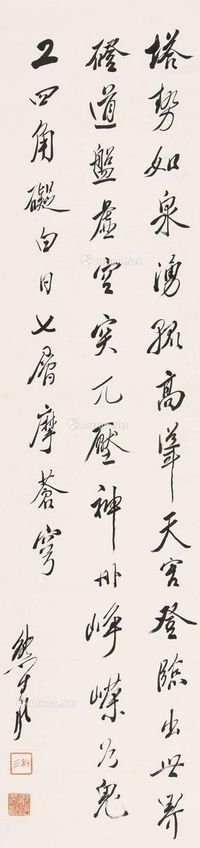 塔势如泉湧孤高耸天宫登临出世界
磴道盘虚空突兀压神州峥嵘如鬼
工四角礙白日七层摩苍穹